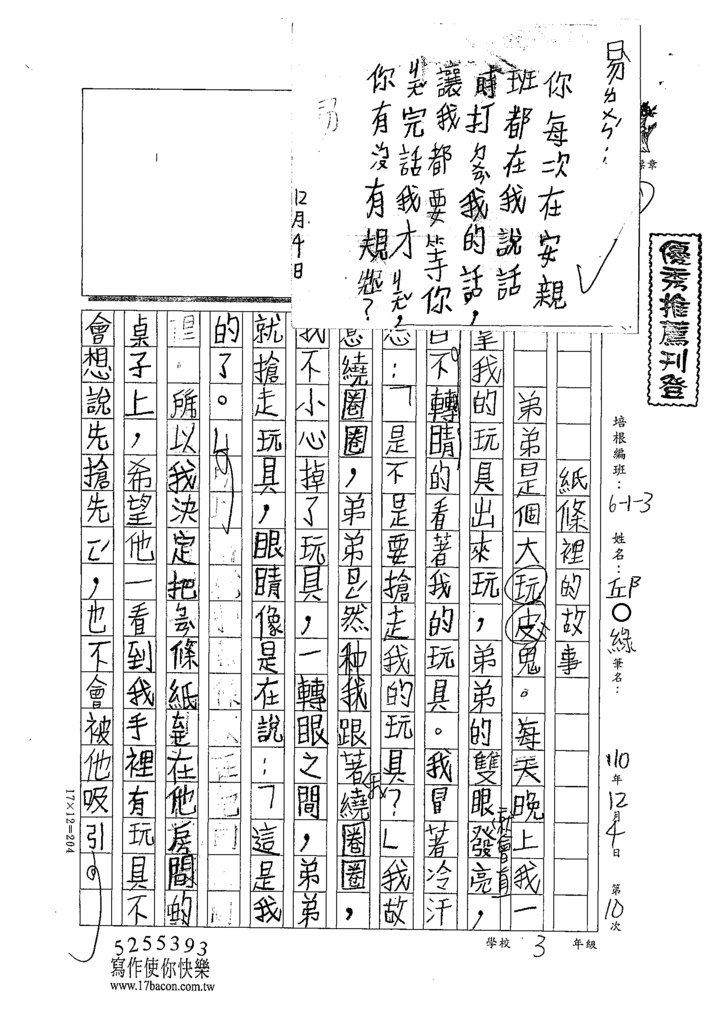 易ㄉㄨㄞˊ：
你每次在安親
班都在我說話
時打ㄉㄨㄢˋ我的話，
讓我都要等你
完話我才
你有沒有規矩？
12月4日
優秀推薦刊登
培根編班：6-1-3 姓名：丘阝○綠 筆名： 110年12月4日 第10次
紙條裡的故事
弟弟是個大玩皮鬼。每天晚上我一
拿我的玩具出來玩，弟弟的雙眼發亮，就會直
目不轉睛的看著我的玩具。我冒著冷汗
想：「是不是要搶走我的玩具？」我故
意繞圈圈，弟弟已然種我跟著我繞圈圈，
我不小心掉了玩具，一轉眼之間，弟弟
就搶走玩具，眼睛像是在說：「這是我
的了。」
所以我決定把這條紙在他房間的
桌子上，希望他一看到我手裡有玩具不
會想說先搶先，也不會被他吸引。
17×12=204
學校 3 年級
5255393
寫作使你快樂
www.17bacon.com.tw